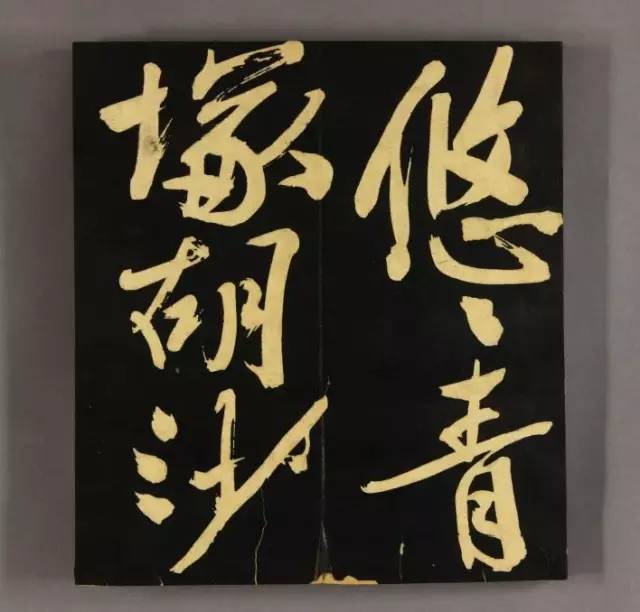 悠〻青
塚胡沙